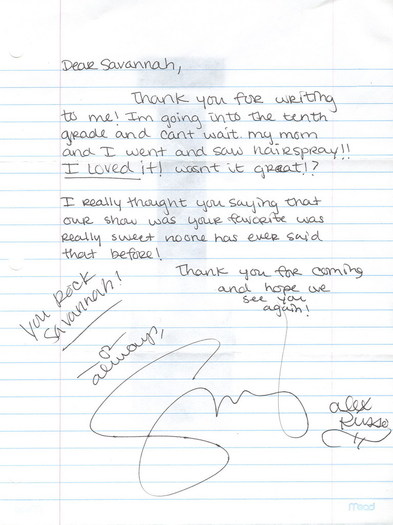 Dear Savannah,
Thank you for writing
to me! Im going into the tenth
grade and cant wait. my mom
and I went and saw hairspray!!
I Loved it! wasnt it great!?
I really thought you saying that
our show was your favorite was
really sweet noone has ever said
that before!
Thank you for coming
and hope we
see you
again!
you Rock
Savannah!
always,
alex
Russo
Mead